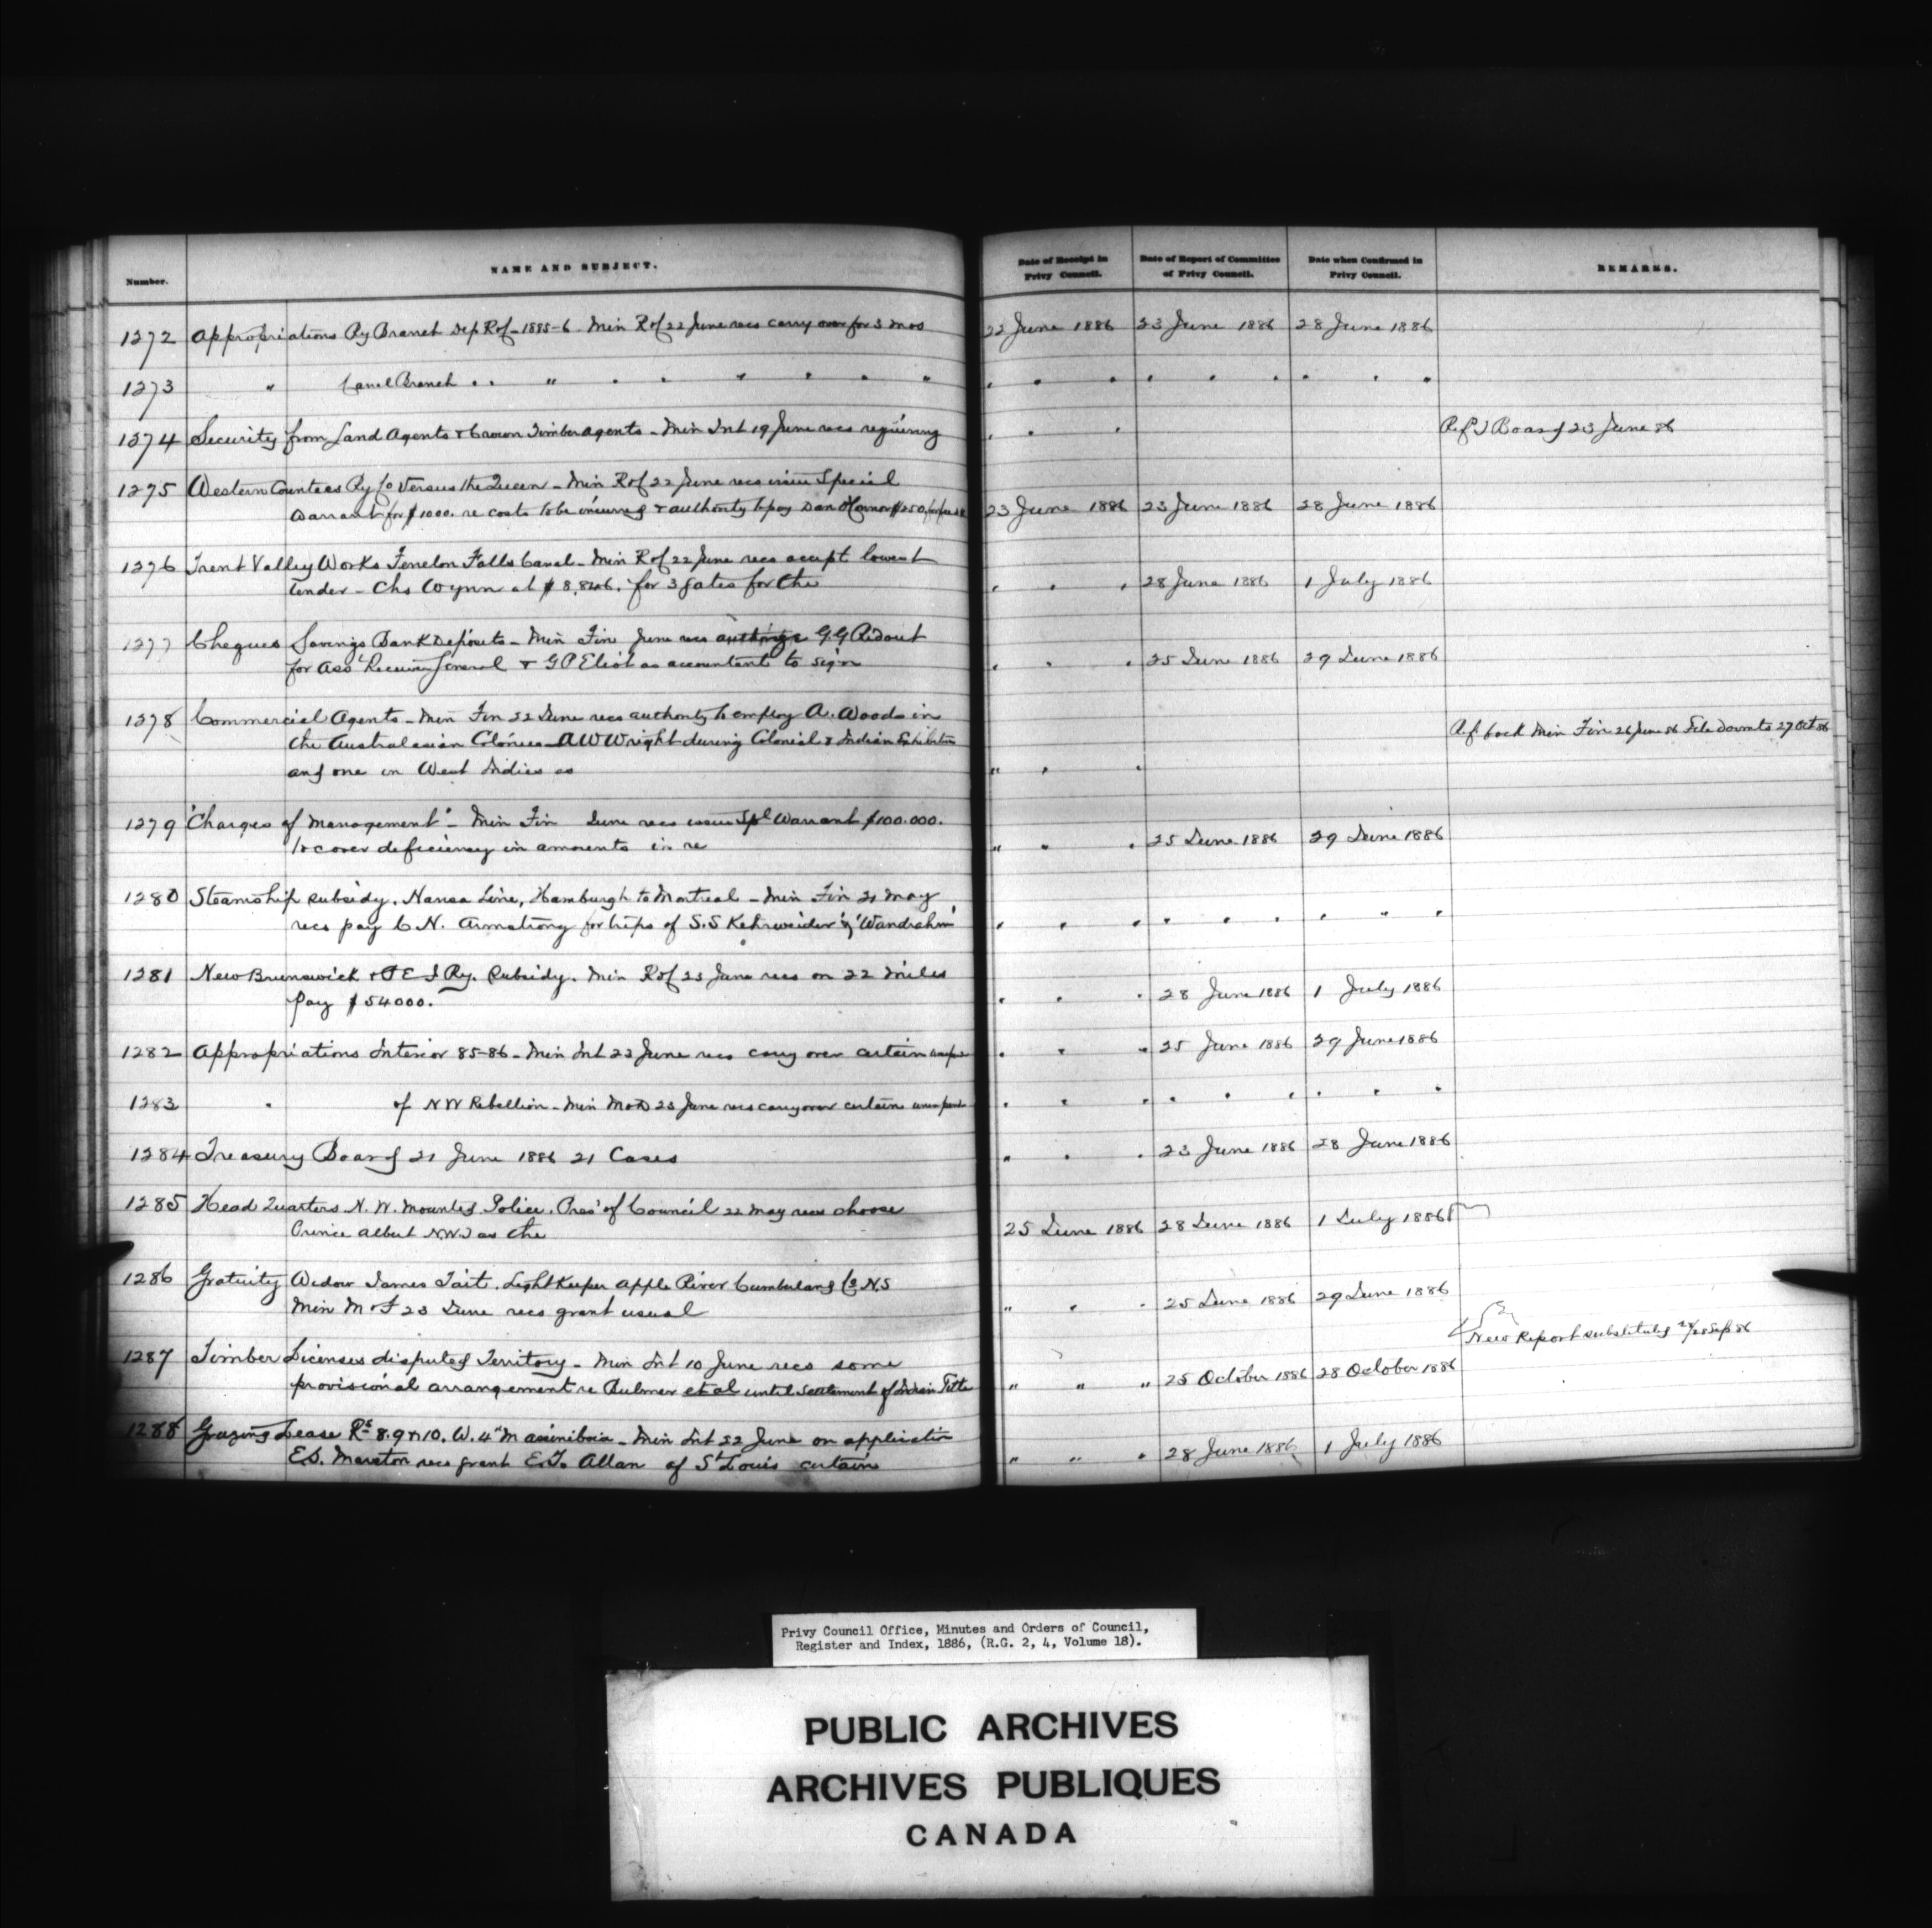 Number.
NAME AND SUBJECT.
Date of Receipt in
Privy Council.
Date of Report of Committee
of Privy Council.
Date when Confirmed in
Privy Council.
REMARKS.
1272 Appropriations Ry Branch Dep R of - 1885-6 Min R of 22 June recs carry over for 3 mos 22 June 1886 23 June 1886 28 June 1886
1273 " Canal Branch " " " " " " " " "
1274 Security from Land Agents & Crown Timber agents - Min Int 19 June recs requiring " " " Ref T Board 23 June 86
1275 Western Counties Ry Co Versus the Queen - Min R of 22 June recs issue Special
Warrant for $1000. re costs to be incurred & authority to pay Dan O'Connor $250 23 June 1886 23 June 1886 28 June 1886
1276 Trent Valley Works Fenelon Falls Canal - Min R of 22 June recs accept lowest
tender - Chs Wynn at $ 8,846. for 3 gates for the " " " 28 June 1886 1 July 1886
1277 Cheques Savings Bank Deposits - Min Fin June recs authorize G G Ridout
for Ass Receiver General & G P Eliot as accountants to sign " " " 25 June 1886 29 June 1886
1278 Commercial Agents - Min Fin 22 June recs authority to employ A. Woods in
the Australasian Colonies - A W Wright during Colonial & Indian Exhibition Ref back Min Fin 26 June 86 File Downts 27 Oct 86
and one in West Indies as " " "
1279 "Charges of Management" - Min Fin June recs issue Spl Warrant $100.000.
to cover deficiency in amounts in re " " " 25 June 1886 29 June 1886
1280 Steamship subsidy. Hansa Line, Hamburgh to Montreal - Min Fin 21 May
recs pay C N. Armstrong for trips of S.S Kehrweider & 'Wandrahm' " " " " " " " " "
1281 New Brunswick & P E I Ry. Subsidy. Min R of 23 June recs on 22 miles
pay $54000. " " " 28 June 1886 1 July 1886
1282 Appropriations Interior 85-86 - Min Int 23 June recs carry over certain " " " 25 June 1886 29 June 1886
1283 " of NW Rebellion - Min M&D 23 June recs carry over certain " " " " " " " " "
1284 Treasury Board 21 June 1886 21 Cases " " " 23 June 1886 28 June 1886
1285 Head Quarters N. W. Mounted Police. Pres' of Council 22 May recs choose
Prince Albert N.W.T as the 25 June 1886 28 June 1886 1 July 1886
1286 Gratuity Widow James Tait. Light Keeper Apple River Cumberland Co N.S
Min M & F 23 June recs grant usual " " " 25 June 1886 29 June 1886
New Report substituted 28 Sep 86
1287 Timber Licenses disputed Territory - Min Int 10 June recs some
provisional arrangement re Bulmer et al until Settlement of Indian Title " " " 25 October 1886 28 October 1886
1288 Grazing Lease Rs 8.9 & 10. W. 4" M Assiniboia - Min Int 22 June on application
E.S. Marston recs grant E.T. Allan of St Louis certain " " " 28 June 1886 1 July 1886
Privy Council Office, Minutes and Orders of Council,
Register and Index, 1886, (R.G. 2, 4, Volume 18).
PUBLIC ARCHIVES
ARCHIVES PUBLIQUES
CANADA